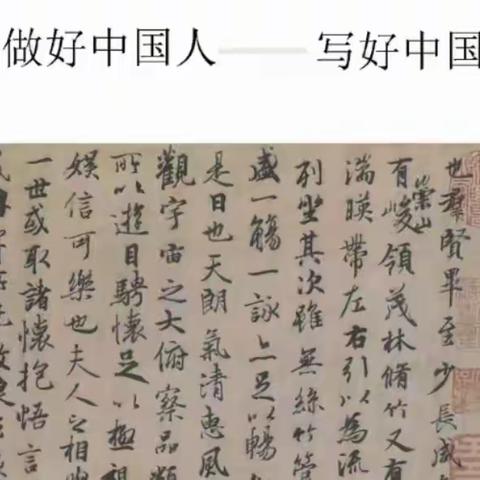 做好中国人——写好中国
也羣賢畢至少長咸
有崇山峻領茂林脩竹又有
湍暎帶左右引以為流
列坐其次雖無絲竹管
盛一觴一詠亦足以暢
是日也天朗氣清惠風
觀宇宙之大俯察品類
所以遊目騁懷足以極視
娛信可樂也夫人之相與
一世或取諸懷抱悟言